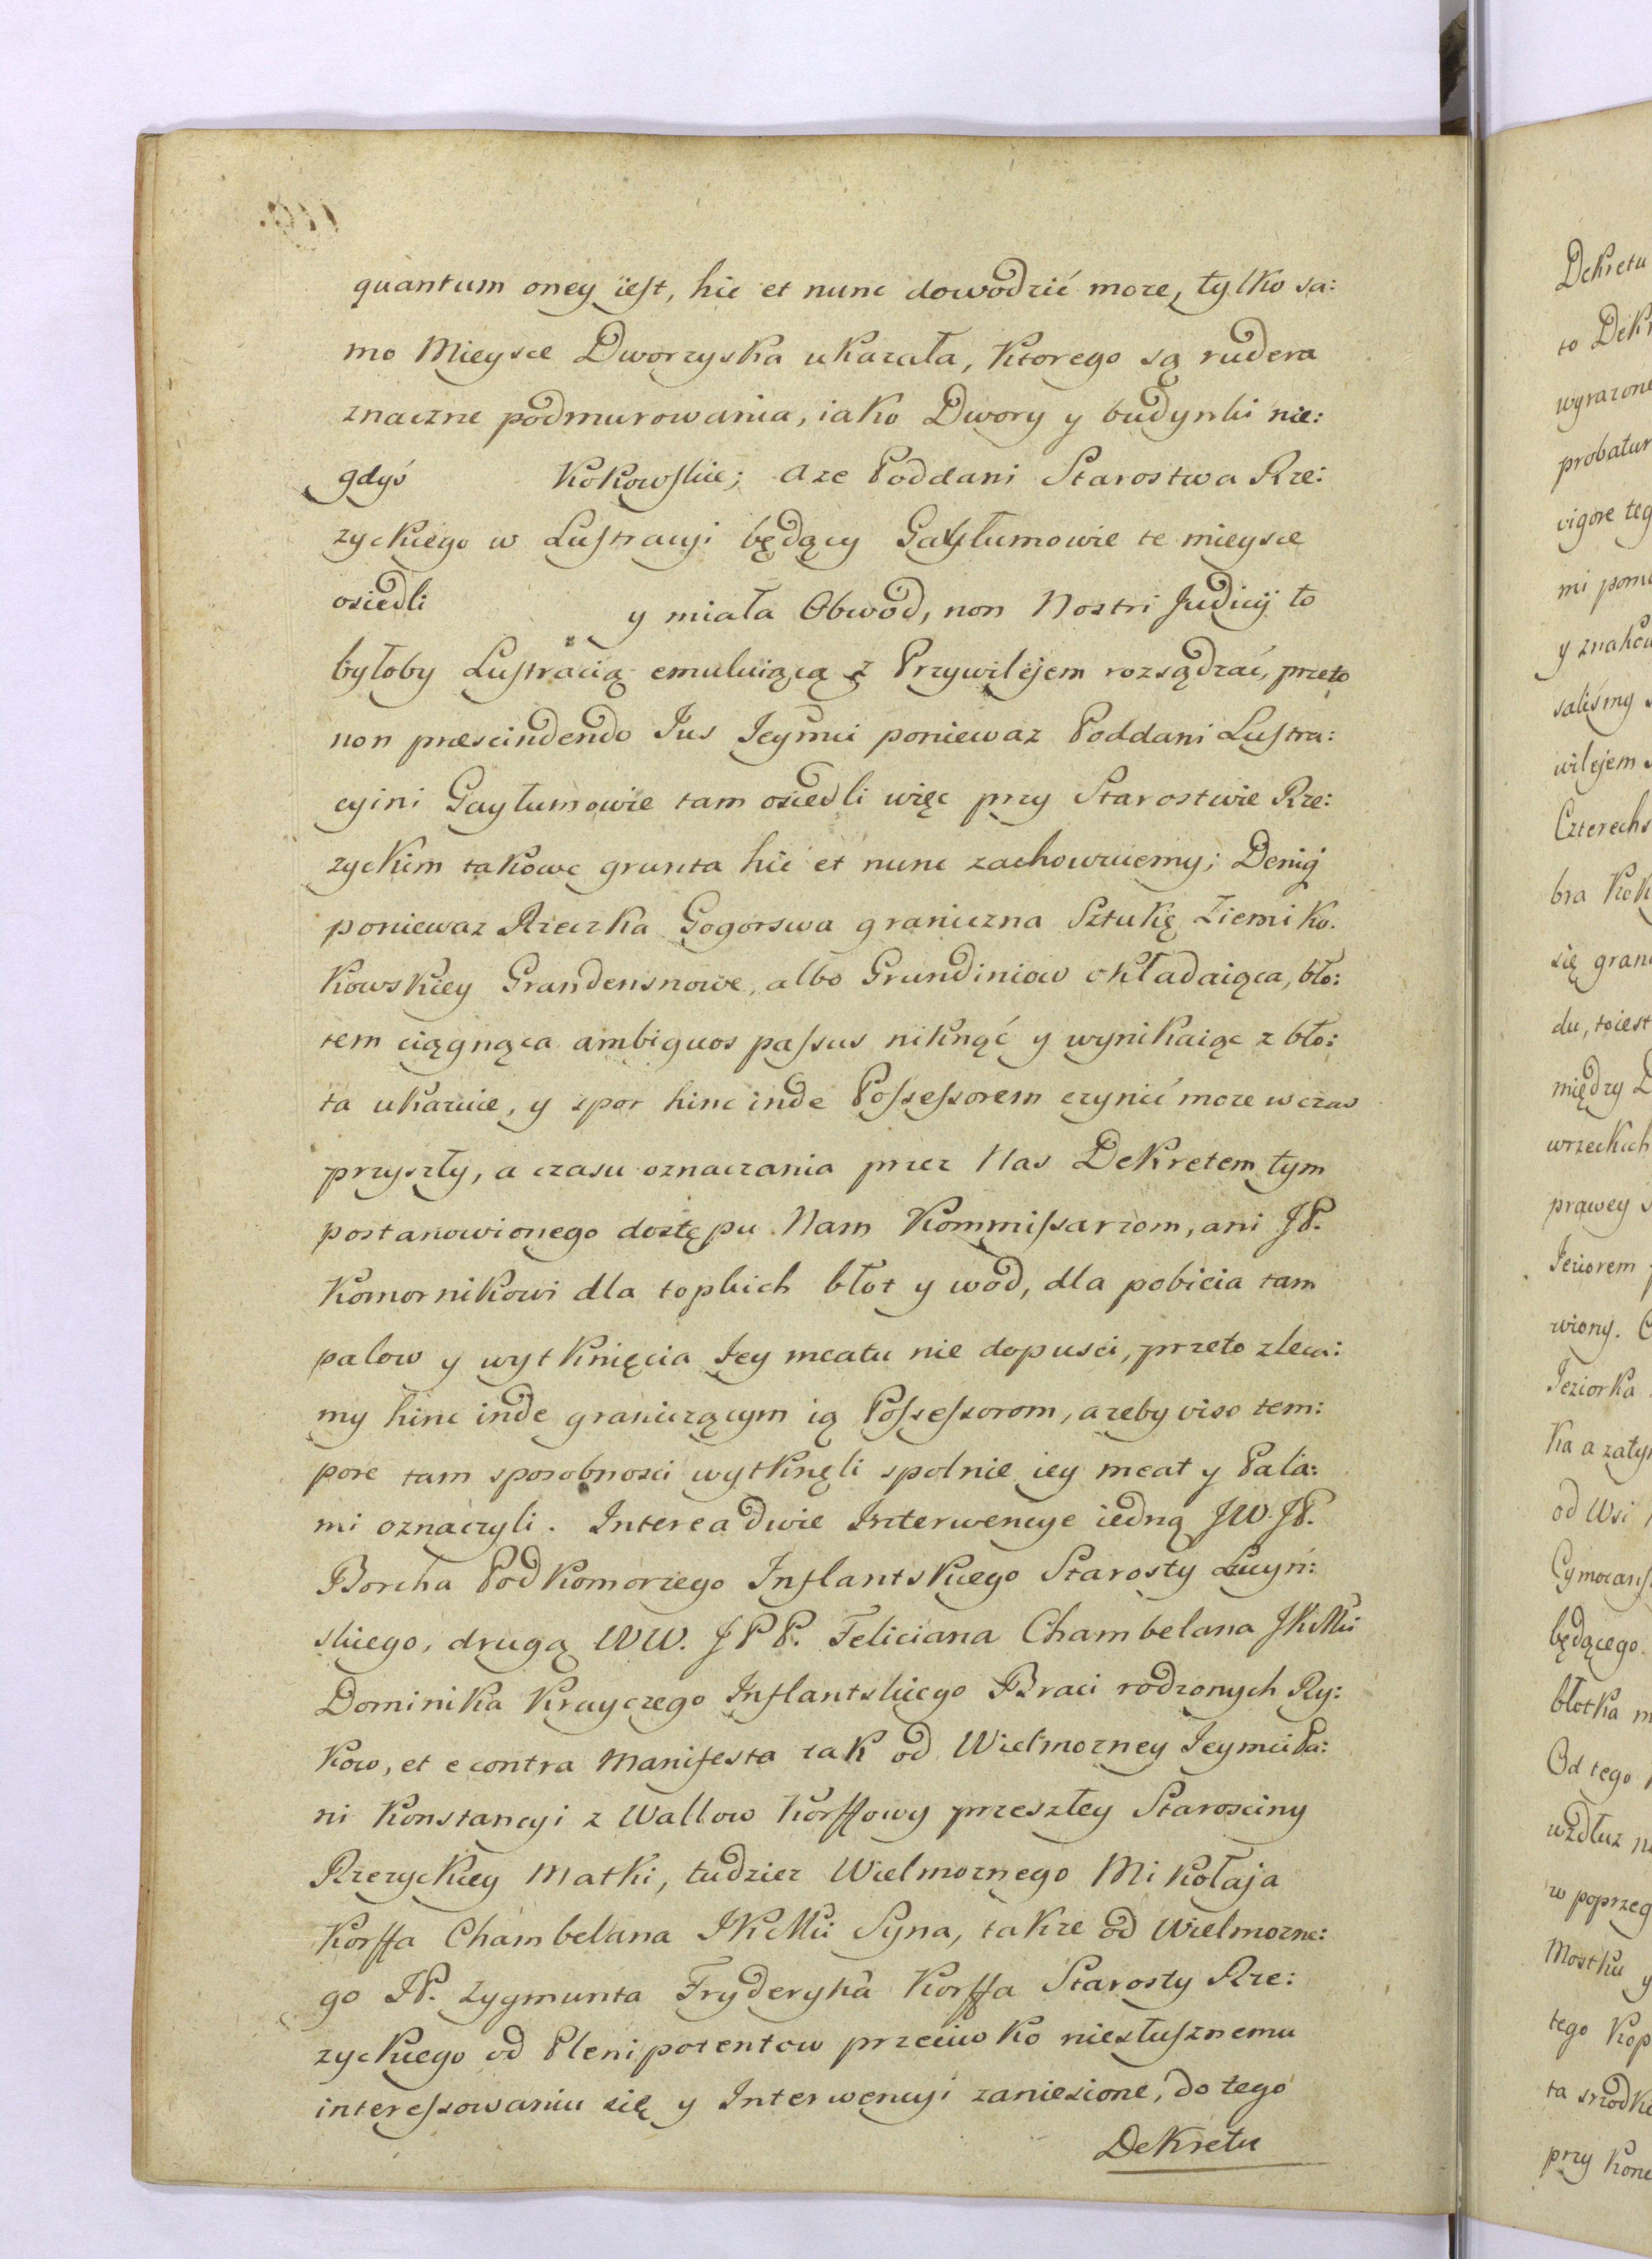 quantum oney iest, hic et nunc dowodzić może, tylko sa:
mo Mieysce Dworzyska ukazała, Ktorego są rudera
znaczne podmurowania, iako Dwory y budynki nie:
gdyś Kokowskie; aże Poddani Starostwa Rze:
zyckiego w Lustracyi będący Gaytumowie te mieysce
osiedli y miała Obwod, non Nostri Judicij to
byłoby Lustracią emuluiącą z Przywilejem rozsądzać, przeto
non præscindendo Jus Jeymci poniewaz Poddani Lustra:
cyini Gaytumowie tam osiedli więc przy Starostwie Rze:
zyckim takowe grunta hic et nunc zachowuiemy; Deniq
poniewaz Rzeczka Gogorswa graniczna Sztukę Ziemi Ko.
kowskiey Grandensnowe, albo Grundiniow okładaiąca, bło:
tem ciągnąca ambiguos passus niknąć y wynikaiąc z bło:
ta ukazuie, y spor hinc inde Possessorem czynić moze w czas
przyszły, a czasu oznaczania przez Nas Dekretem tym
postanowionego dostępu Nam Kommissarzom, ani JP.
Komornikowi dla topkich błot y wod, dla pobicia tam
palow y wytknięcia Jey meatu nie dopusci, przeto zleca:
my hinc inde graniczącym ią Possessorom, azeby viso tem:
pore tam sposobnosci wytknęli spolnie iey meat y Pala:
mi oznaczyli. Interea dwie Interwencye iedną JW. JP.
Borcha Podkomorzego Inflantskiego Starosty Lucyń:
skiego, drugą WW. JPP. Feliciana Chambelana JKMci
Dominika Krayczego Inflantskiego Braci rodzonych Ry:
kow, et e contra Manifesta tak od Wielmozney Jeymci Pa:
ni Konstancyi z Wallow Korffowy przeszłey Starosciny
Rzezyckiey Matki, tudziez Wielmoznego Mikołaja
Korffa Chambelana JKMci Syna, takze od Wielmozne:
go JP. Zygmunta Fryderyka Korffa Starosty Rze:
zyckiego od Plenipotentow przeciwko niesłusznemu
interessowaniu się y Interwencyi zaniesione, do tego
Dekretu
Dekretu
to Dekr
wyrazone
probatur
vigore teg
mi pom
y znako
saliśmy
wilejem
Czterechs
bra Kok
się gran
du, toiest
między
wrzeckich
prawey
Jeziorem
wiony.
Jeziorka
Ka a zatym
od Wsi
będącego.
błotka
Od tego
wzdłuz
w poprzeg
Mostku y
tego Kop
ta srzodk
przy Kon